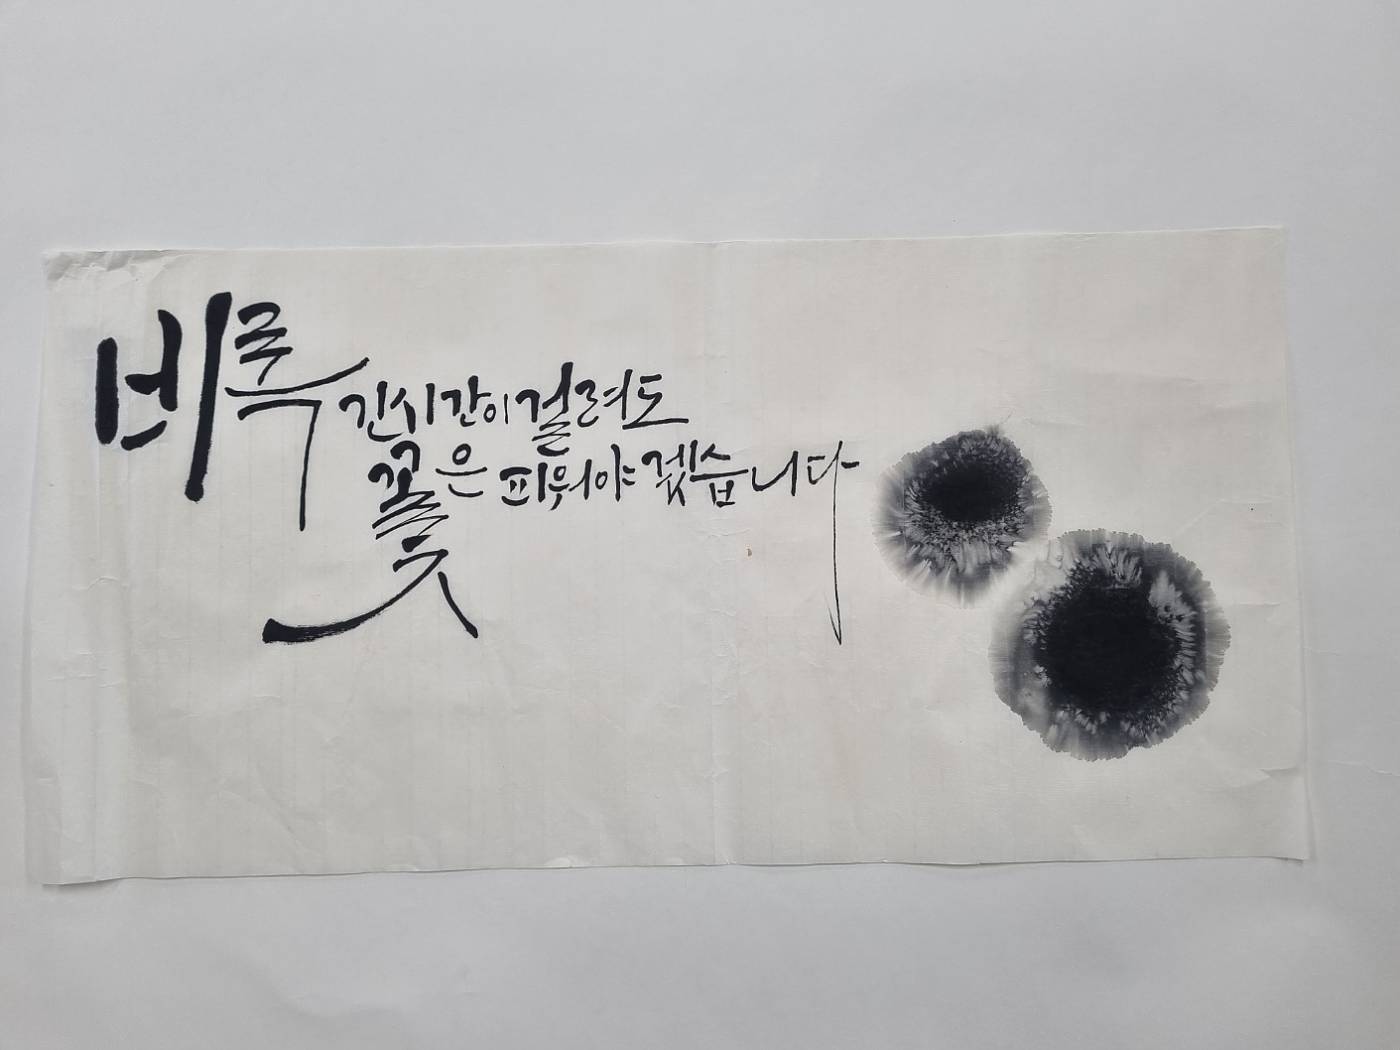 비록 긴시간이 걸려도
꽃은 피워야겠습니다